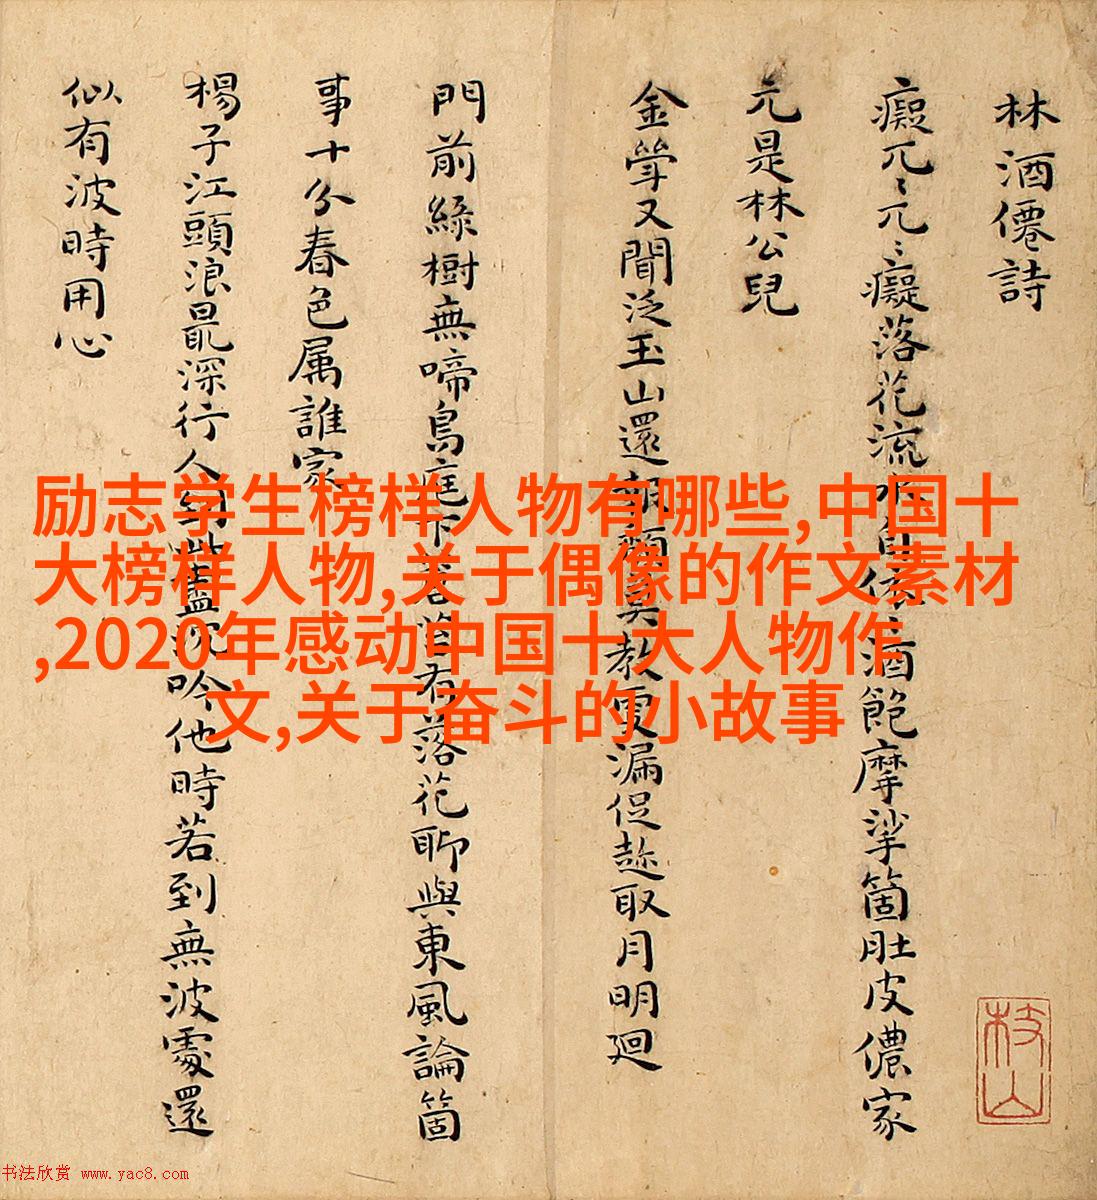 林酒僊詩
癡兀〻兀〻癡落花流水自依〻酒飽摩挲箇肚皮儂家
元是林公兒
金斝又聞泛玉山還頹莫教更漏促趁取月明廻
門前綠樹無啼鳥庭下蒼苔有落花聊與東風論箇
事十分春色属誰家
楊子江頭浪最深行人到此盡沉吟他時若到無波處還
似有波時用心
枝山
励志学生榜样人物有哪些,中国十
大榜样人物,关于偶像的作文素材
,2020年感动中国十大人物作
文,关于奋斗的小故事
书法欣赏 www.yac8.com